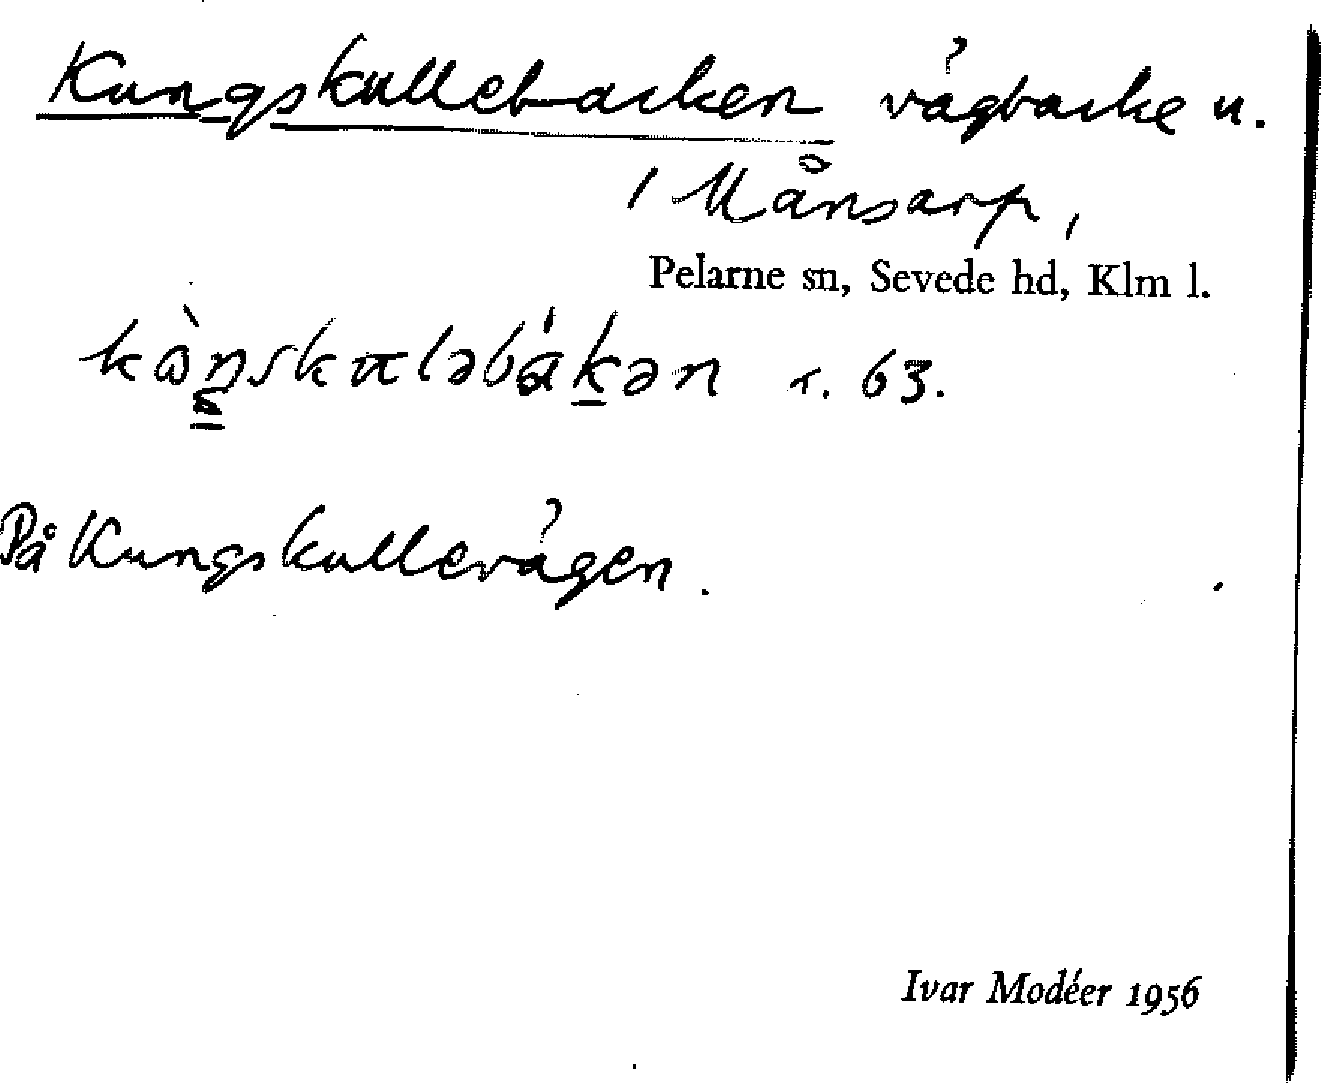 Kungskullebacken vägbacke u.
/ Månsarp,
Pelarne sn, Sevede hd, Klm l.
63.
På Kungskullevägen.
Ivar Modéer 1956